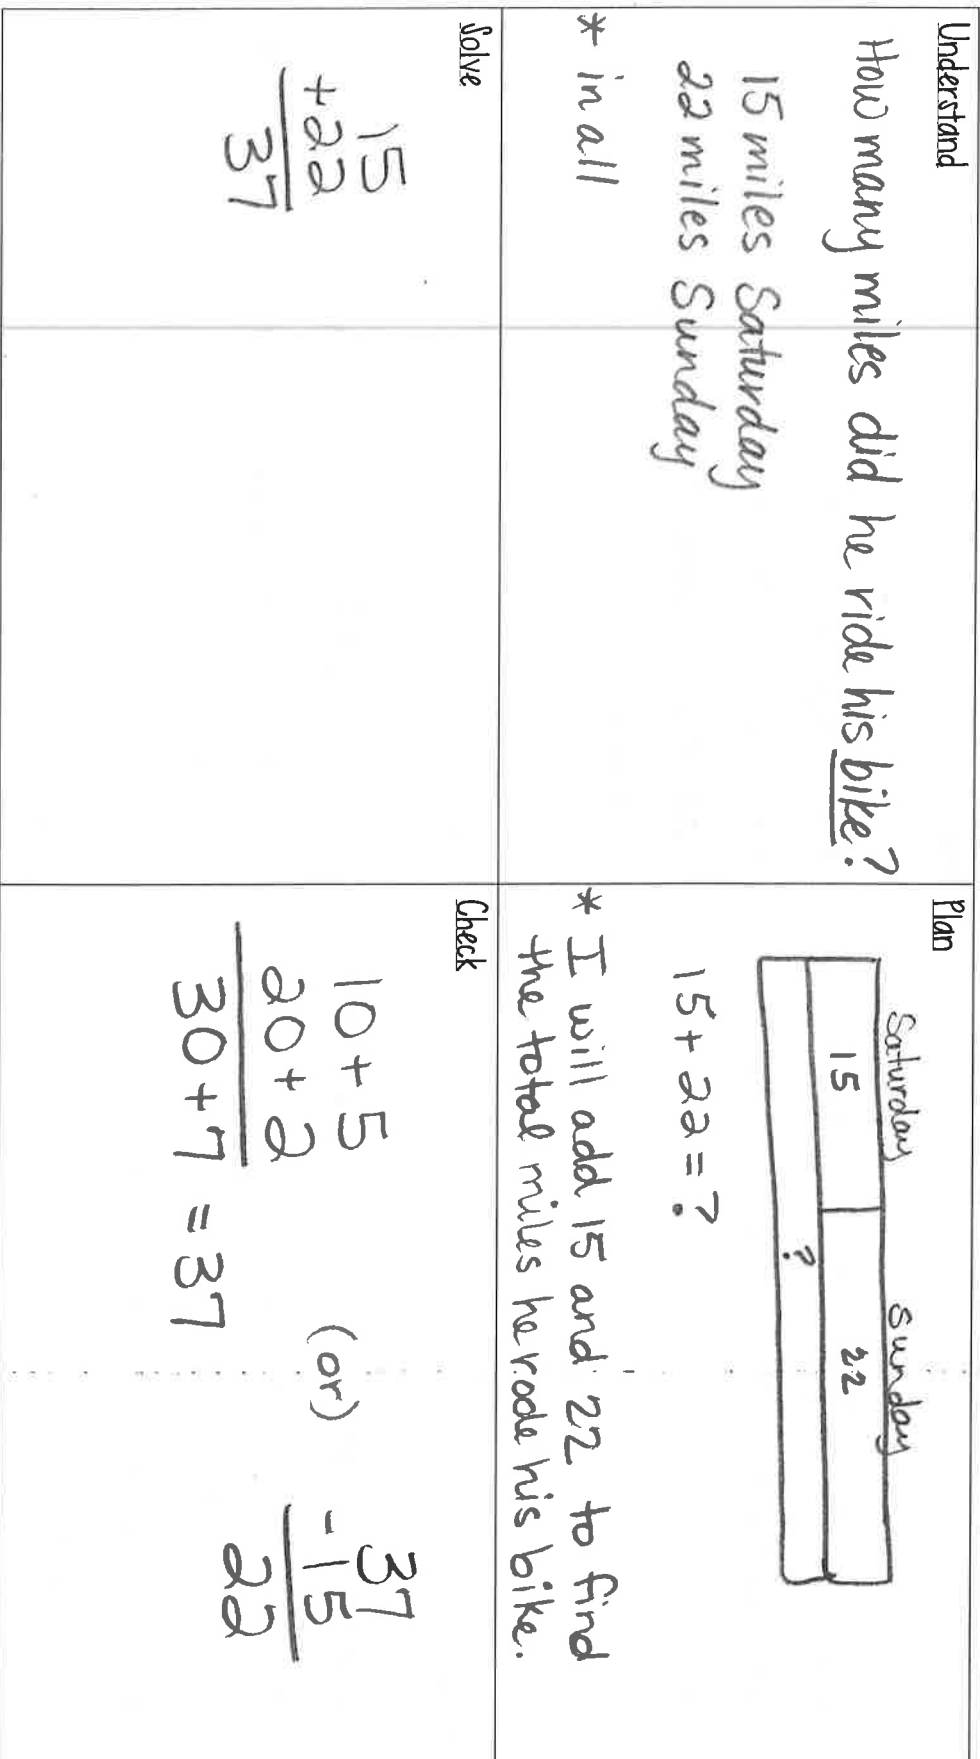 Understand
How many miles did he ride his bike?
15 miles Saturday
22 miles Sunday
* in all
Plan
Saturday Sunday
15 22
?
15 + 22 = ?
* I will add 15 and 22 to find
the total miles he rode his bike.
Solve
15
+22
37
Check
10 + 5
20 + 2
30 + 7 = 37
(or)
37
-15
22